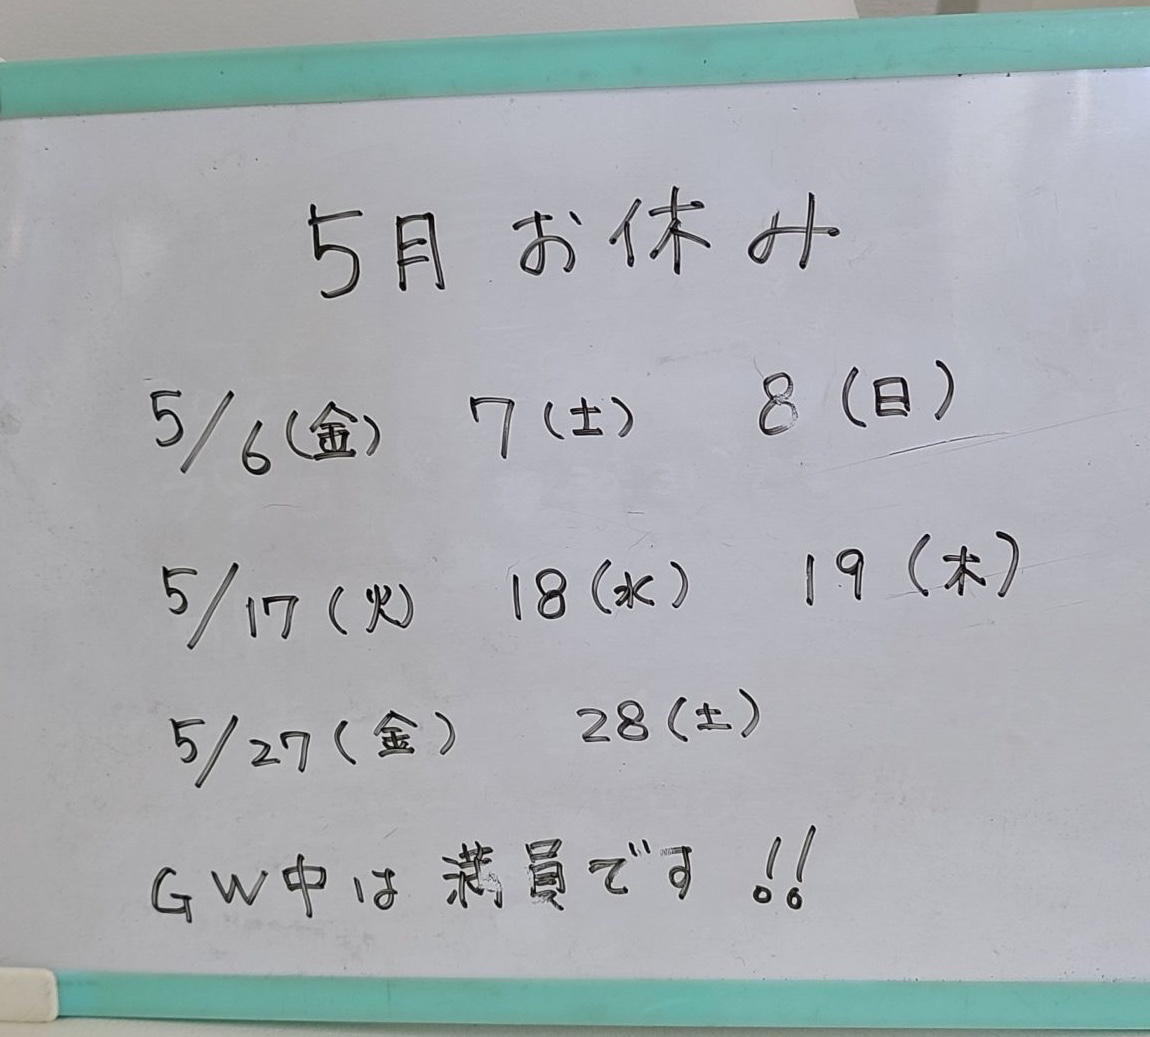 5月 お休み
5/6(金) 7(土) 8(日)
5/17(火) 18(水) 19(木)
5/27(金) 28(土)
GW中は 満員です!!